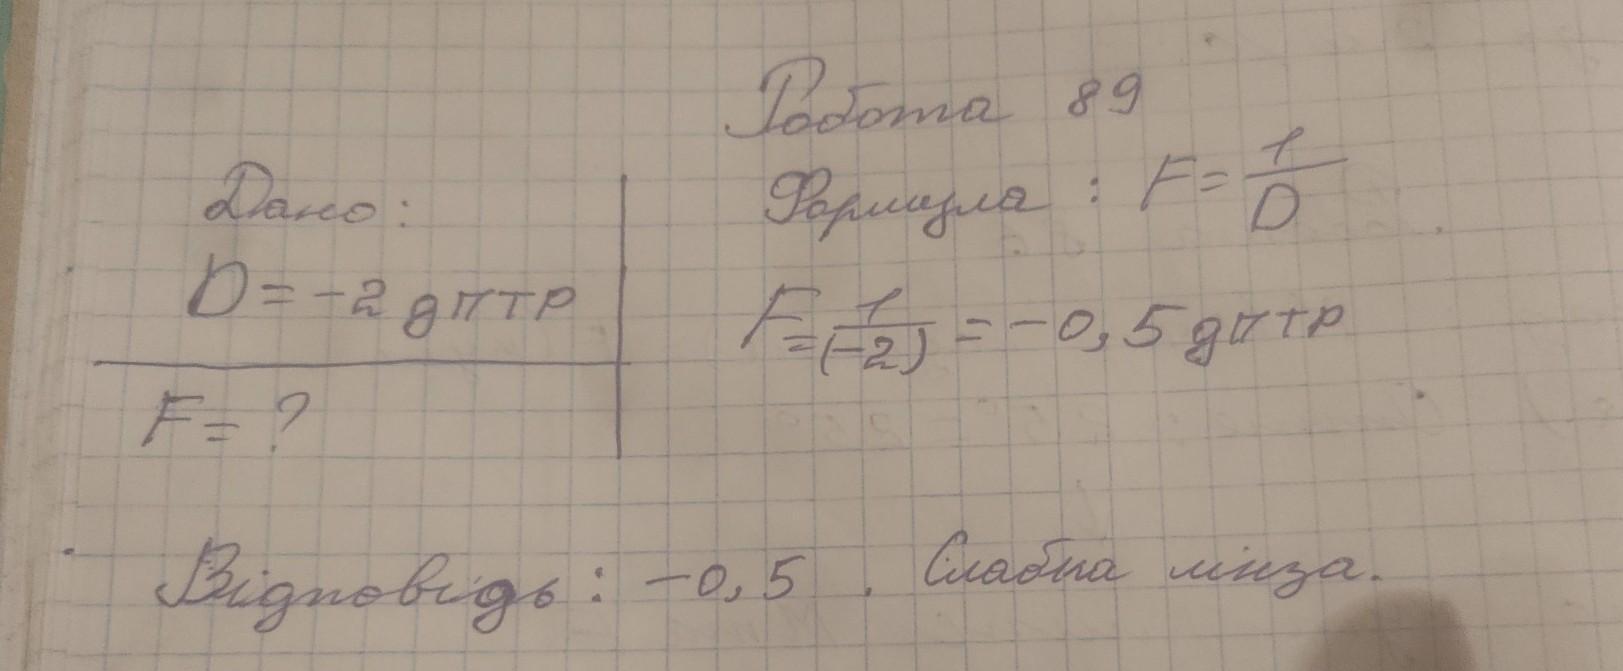 Робота 89
Дано:
D = -2 дптр
F = ?
Формула : F = 1/D
F = 1/(-2) = -0,5 дптр
Відповідь : -0,5 . Слабка лінза.